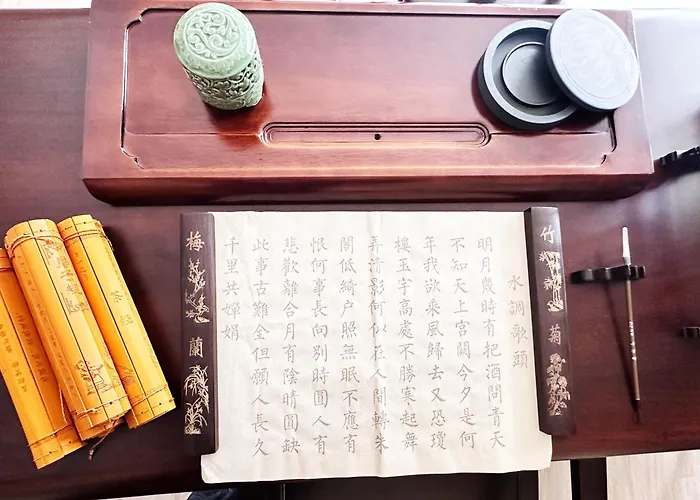 竹菊
水調歌頭
明月幾時有把酒問青天
不知天上宮闕今夕是何
年我欲乘風歸去又恐瓊
樓玉宇高處不勝寒起舞
弄清影何似在人間轉朱
閣低綺户照無眠不應有
恨何事長向別時圓人有
悲歡離合月有陰晴圓缺
此事古難全但願人長久
千里共嬋娟
梅蘭